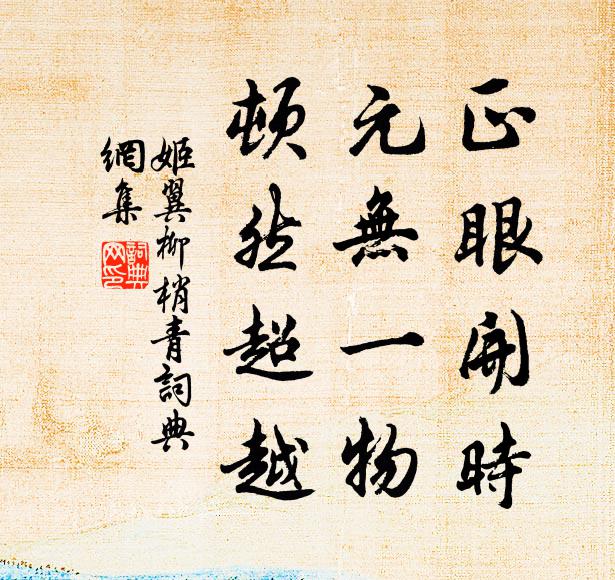 正眼開時
元無一物
頓然超越
姬翼柳梢青詞典
網集
詞典網印